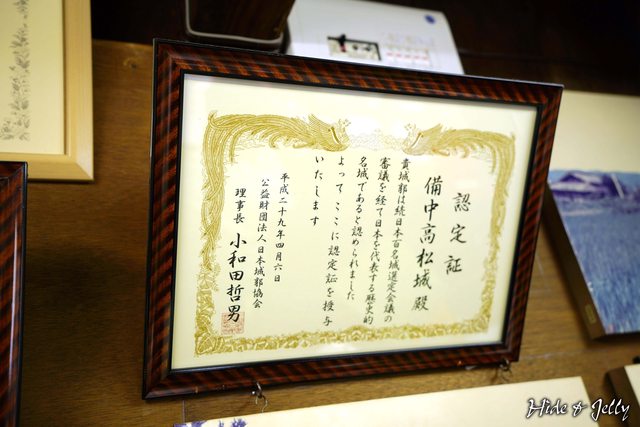 認定証
備中高松城殿
貴城郭は続日本百名城選定会議の
審議を経て日本を代表する歴史的
名城であると認められました
よってここに認定証を授与
いたします
平成二十九年四月六日
公益財団法人日本城郭協会
理事長 小和田哲男
Hide & Jelly